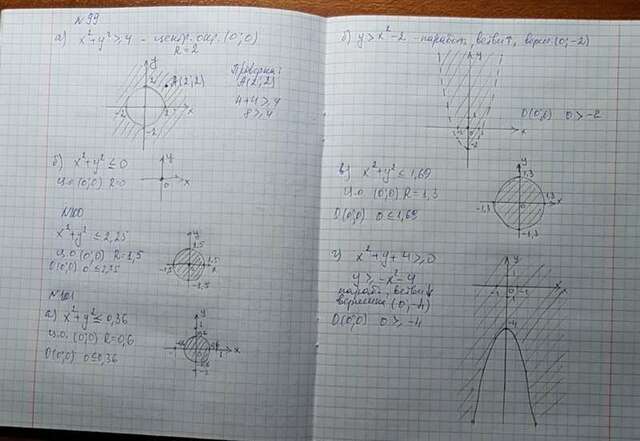 N 99
а) x²+y² ≥ 4 - центр. окр. (0;0)
R = 2
y
2
A(2;2)
-2
2
x
-2
Проверка:
A(2;2)
4+4 ≥ 4
8 ≥ 4
б) x²+y² ≤ 0
ц.о. (0;0) R=0
y
0
x
N 100
x²+y² ≤ 2,25
ц.о. (0;0) R=1,5
O(0;0) 0 ≤ 2,25
y
1,5
-1,5
1,5
x
-1,5
N 101
а) x²+y² ≤ 0,36
ц.о. (0;0) R=0,6
O(0;0) 0 ≤ 0,36
y
1
0,6
-1
x
-1
б) y > x²-2 - парабол., ветви ↑, верш. (0;-2)
y
1
-1
0
1
x
-2
O(0;0) 0 > -2
в) x²+y² ≤ 1,69
ц.о. (0;0) R=1,3
O(0;0) 0 ≤ 1,69
y
1,3
-1,3
0
1,3
x
-1,3
г) x²+y+4 ≥ 0
y ≥ -x²-4
параб., ветви ↓
вершина (0;-4)
O(0;0) 0 ≥ -4
y
1
-1
0
1
x
-1
-4